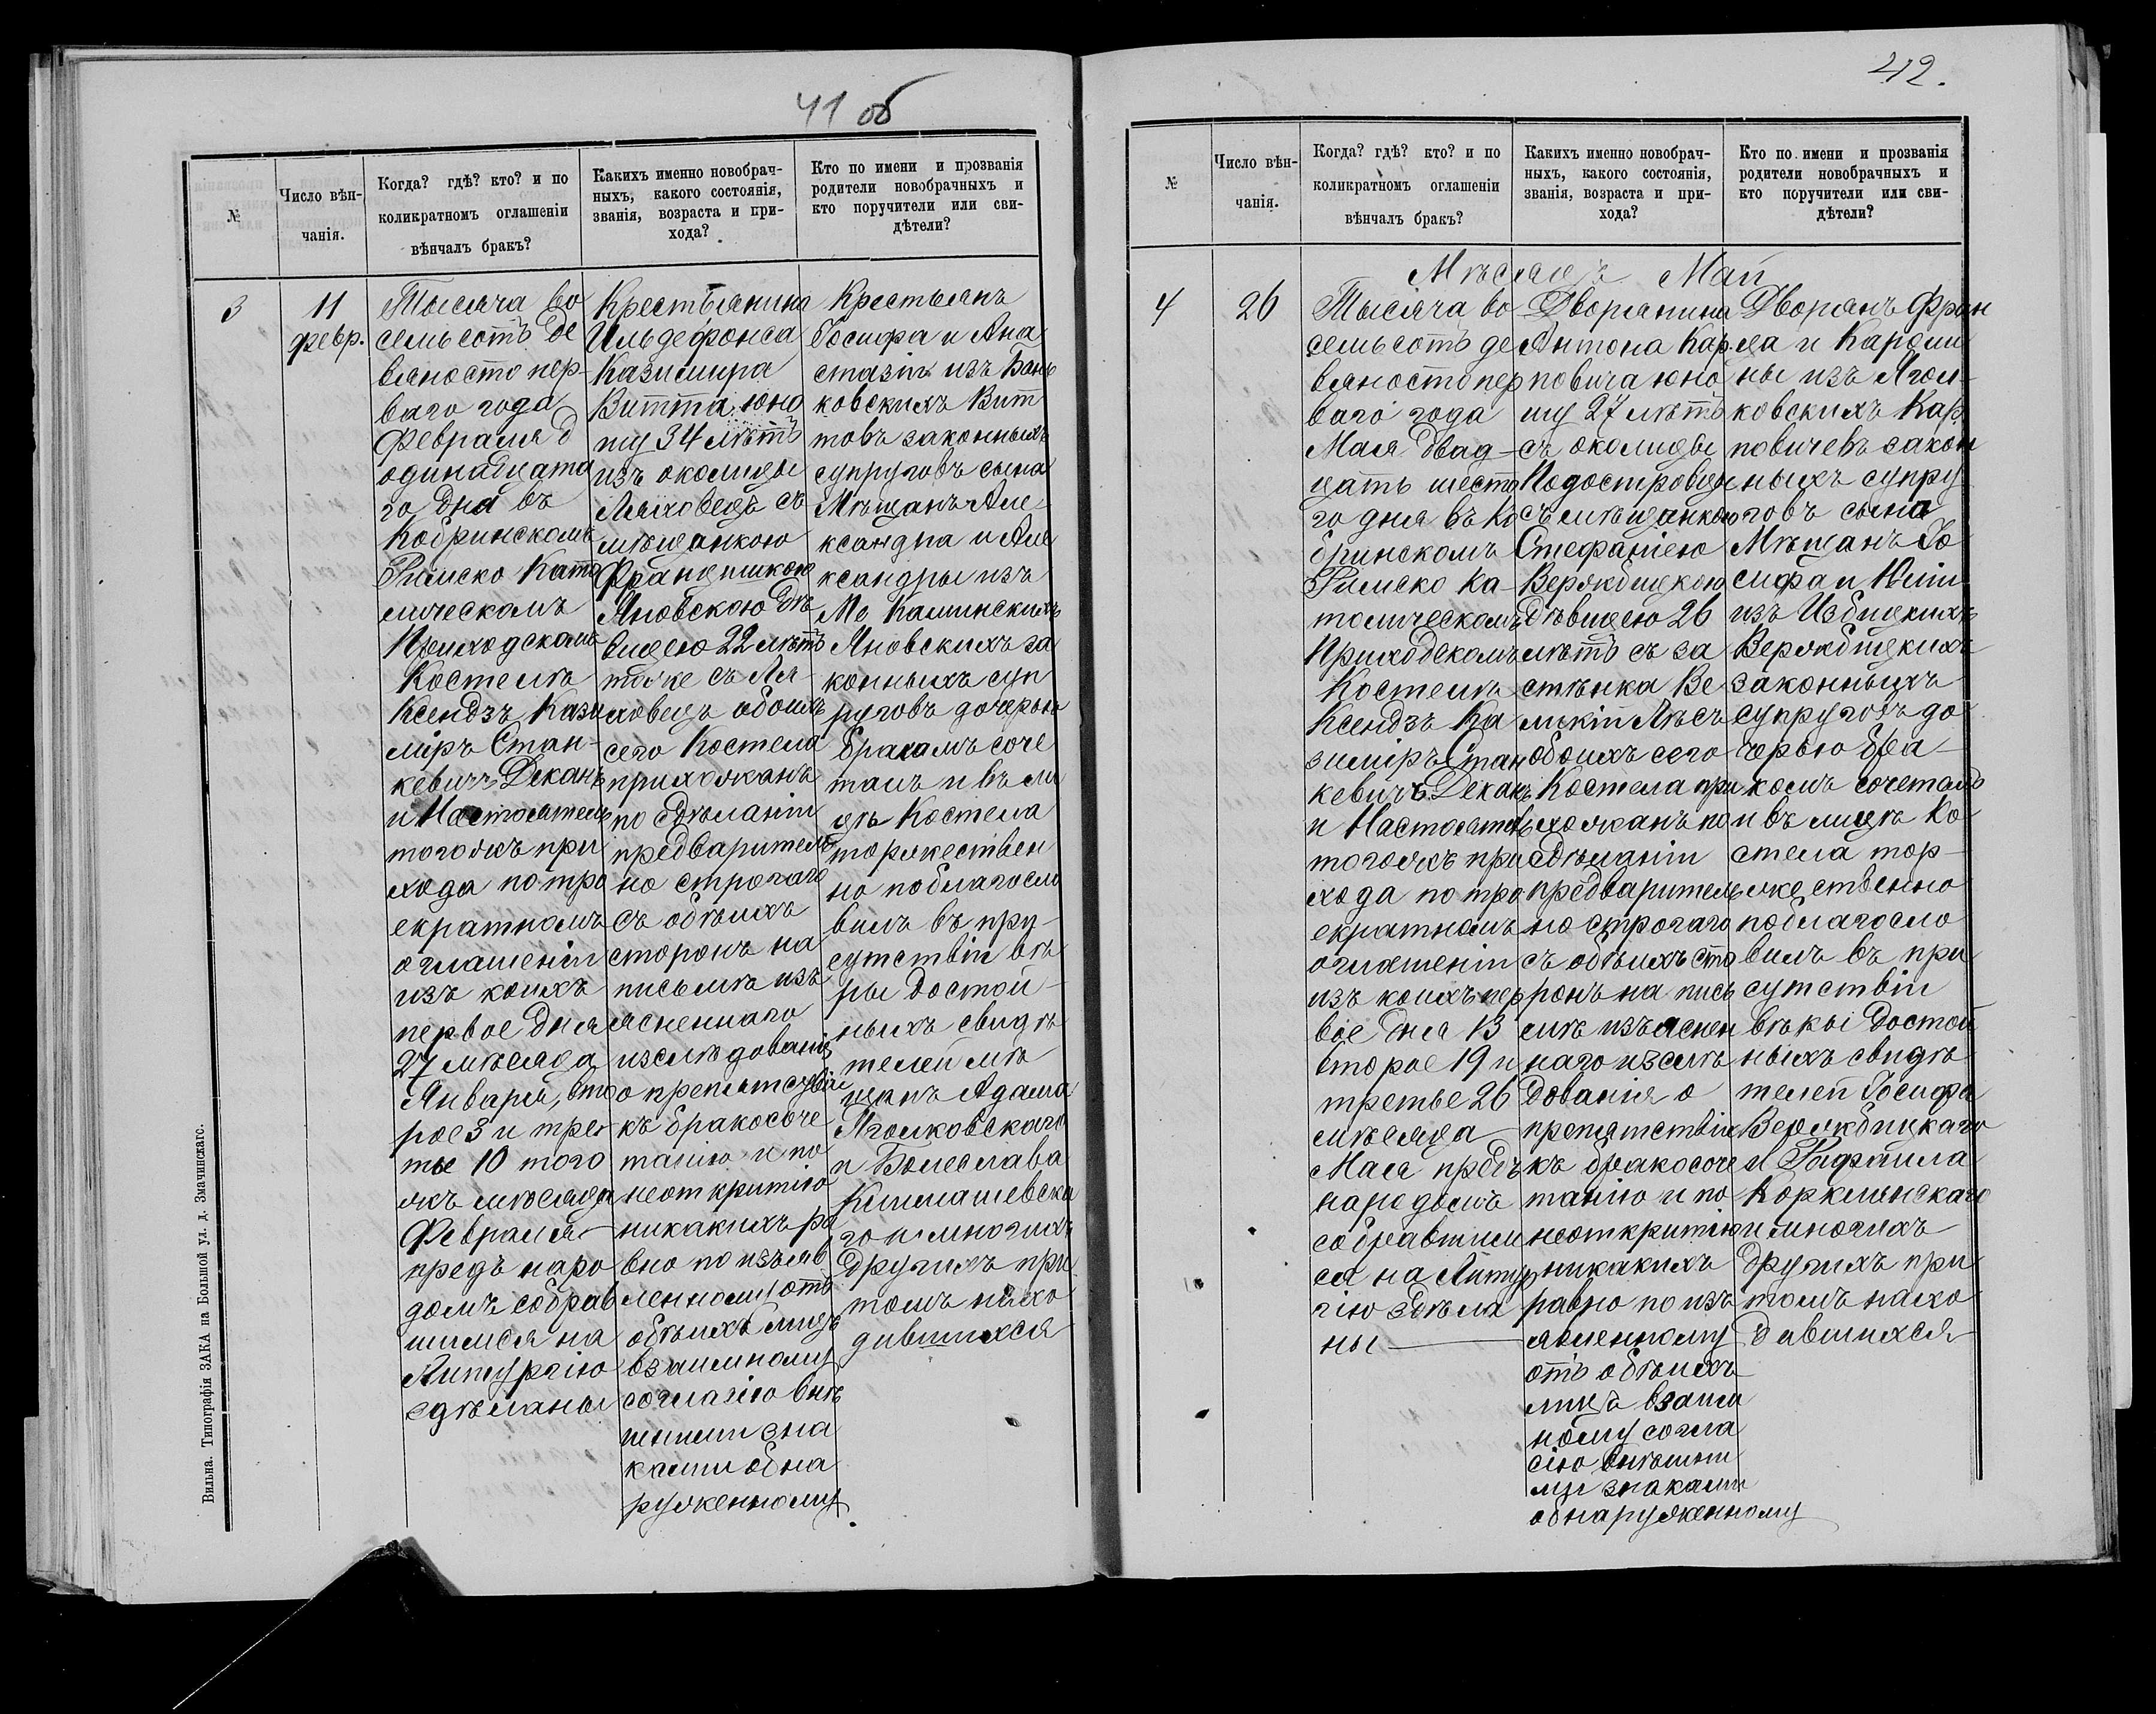 41 об
№
Число вѣн-
чанія.
Когда? гдѣ? кто? и по
коликратномъ оглашеніи
вѣнчалъ бракъ?
Какихъ именно новобрач-
ныхъ, какого состоянія,
званія, возраста и при-
хода?
Кто по имени и прозванія
родители новобрачныхъ и
кто поручители или сви-
дѣтели?
3
11
февр.
Тысяча во
семьсотъ де
вяносто пер-
ваго года
Февраля
одинадцата
го дня въ
Кобринскомъ
Римско Като
лическомъ
Приходскомъ
Костелѣ
Ксендзъ Кази
міръ Стан-
кевичъ Деканъ
и Настоятель
тогожъ при
хода по тро
екратномъ
оглашеніи
изъ коихъ
первое дня
27 мѣсяца
Января, вто
рое 3 и трет
тье 10 того
жъ мѣсяца
Февраля
предъ наро
домъ собрав
шимся на
Литургію
сдѣланы
Крестьянина
Ильдефонса
Казимира
Витта юно
шу 34 лѣтъ
изъ околицы
Ляховецъ съ
мѣщанкою
Францишкою
Яновскою дѣ
вицею 22 лѣтъ
тоже съ Ля-
ховецъ обоихъ
сего Костела
прихожанъ
по сдѣланіи
предваритель
но строгаго
съ обѣихъ
сторонъ на
письмѣ изъ
ясненнаго
изслѣдованія
о препятствіи
къ бракосоче
танію и по
неоткритію
никакихъ ра
вно по изъяв
ленному отъ
обѣихъ лицъ
взаимному
согласію внѣ
шними зна
ками обна
руженному
Крестьянъ
Іосифа и Ана
стазіи изъ Бань
ковскихъ Вит
товъ законныхъ
супруговъ сына
Мѣщанъ Але
ксандра и Але
ксандры изъ
Мо Каминскихъ
Яновскихъ за
конныхъ суп
руговъ дочерью
бракомъ соче
талъ и въ ли
цѣ Костела
торжествен
но поблагосло
вилъ въ при-
сутствіи вѣ
ры достой-
ныхъ свидѣ
телей мѣ
щанъ Адама
Яголковскаго
и Болеслава
Климашевска
го и многихъ
другихъ при
томъ нахо
дившихся
Вильна. Типографія ЗАКА на Большой ул. д. Значинскаго.
42.
№
Число вѣн-
чанія.
Когда? гдѣ? кто? и по
коликратномъ оглашеніи
вѣнчалъ бракъ?
Какихъ именно новобрач-
ныхъ, какого состоянія,
званія, возраста и при-
хода?
Кто по имени и прозванія
родители новобрачныхъ и
кто поручители или сви-
дѣтели?
Мѣсяцъ Май
4
26
Тысяча во
семьсотъ де
вяносто пер
ваго года
Мая двад-
цать шесто
го дня въ Ко
бринскомъ
Римско Ка-
толическомъ
Приходскомъ
Костелѣ
Ксендзъ Ка
зиміръ Стан
кевичъ Деканъ
и Настоятель
тогожъ при
хода по тро
екратномъ
оглашеніи
изъ коихъ пер
вое дня 13
второе 19 и
третье 26
мѣсяца
Мая предъ
народомъ
собравшим
ся на Литур
гію сдѣла
ны
Дворянина
Антона Кар
повича юно
шу 27 лѣтъ
съ околицы
Подостровцы
съ мѣщанкою
Стефаніею
Вержбицкою
дѣвицею 26
лѣтъ съ за
стѣнка Ве
лькій Лѣсъ
обоихъ сего
Костела при
хожанъ по
сдѣланіи
предваритель
но строгаго
съ обѣихъ сто
ронъ на пись
мѣ изъяснен
наго изслѣ
дованія о
препятствіи
къ бракосоче
танію и по
неоткритію
никакихъ
равно по изъ
явленному
отъ обѣихъ
лицъ взаим
ному согла
сію внѣшни
ми знаками
обнаруженному
Дворянъ Фран
ца и Кароли
ны изъ Ягол-
ковскихъ Кар
повичевъ закон
ныхъ супру
говъ сына
Мѣщанъ Іо
сифа и Юліи
изъ Избицкихъ
Вержбицкихъ
законныхъ
супруговъ до
черью бра-
комъ сочеталъ
и въ лицѣ Ко
стела тор-
жественно
поблагосло
вилъ въ при
сутствіи
вѣры достой
ныхъ свидѣ
телей Іосифа
Вержбицкаго
и Рафаила
и многихъ
другихъ при
томъ нахо
дившихся